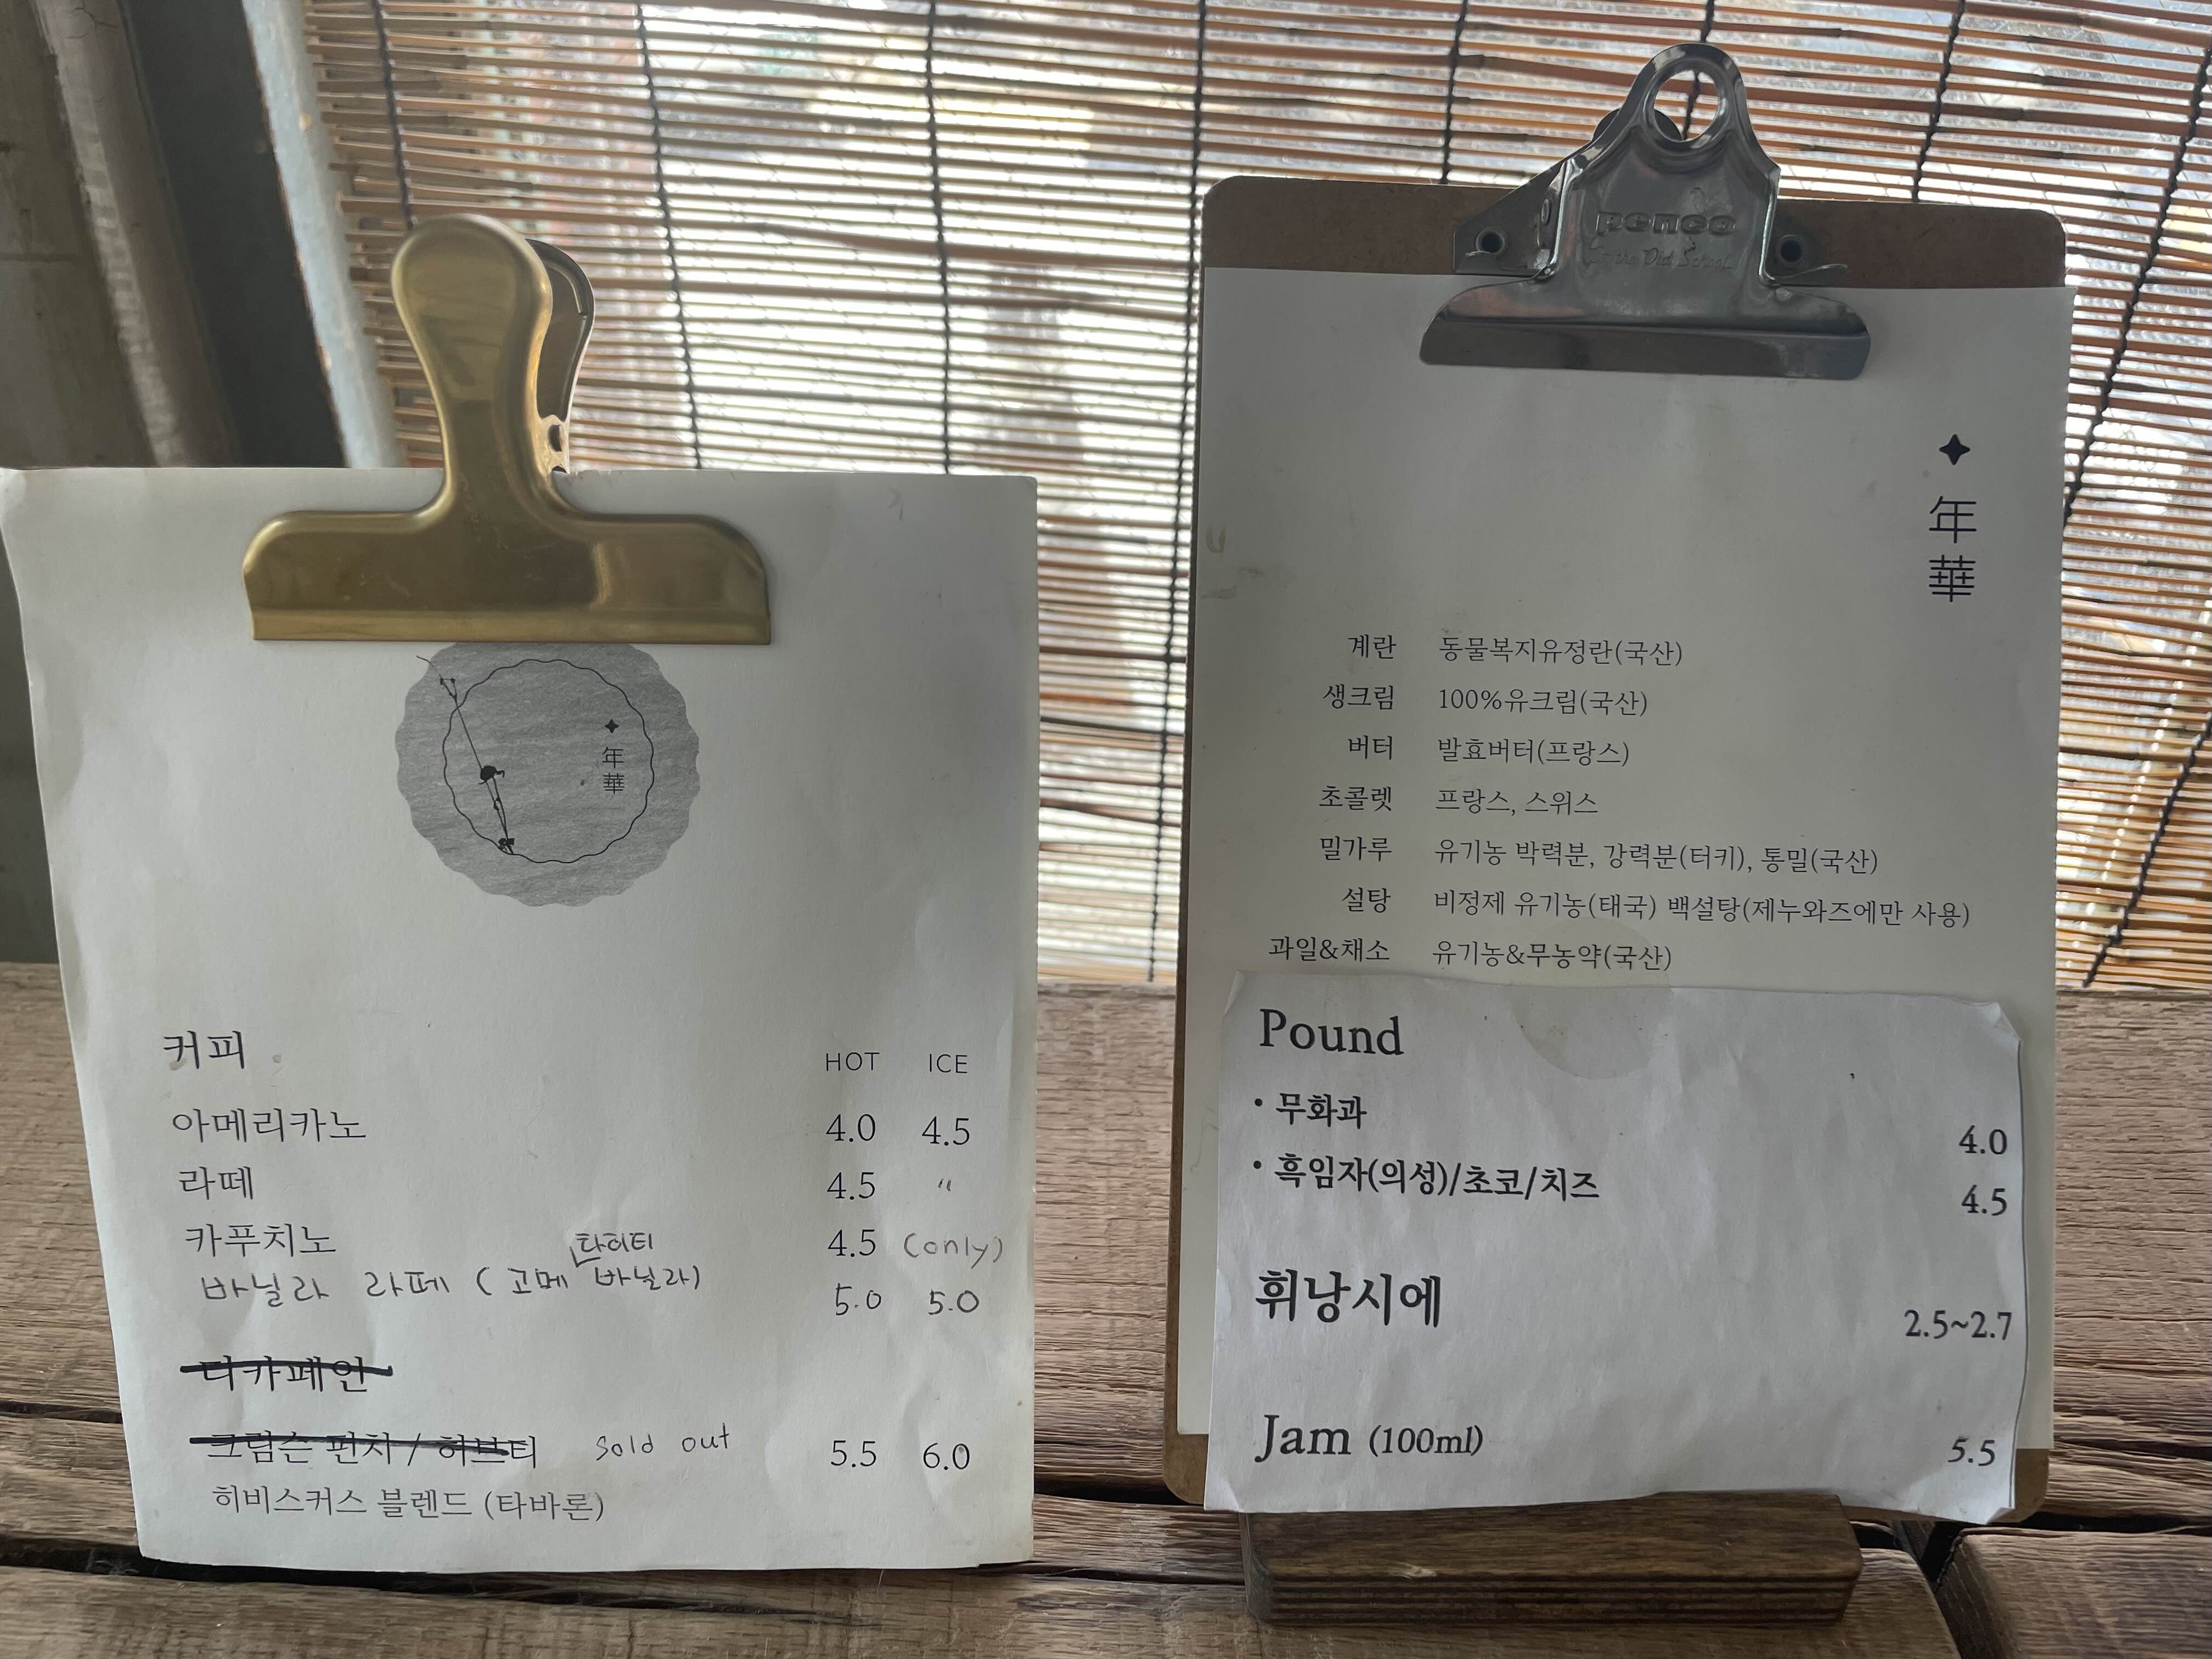 年
華
커피
HOT ICE
아메리카노 4.0 4.5
라떼 4.5 〃
카푸치노 4.5 (only)
타히티
바닐라 라떼 (고메 바닐라) 5.0 5.0
디카페인
크림슨 펀치 / 허브티 Sold out 5.5 6.0
히비스커스 블렌드 (타바론)
penco
年
華
계란 동물복지유정란(국산)
생크림 100%유크림(국산)
버터 발효버터(프랑스)
초콜렛 프랑스, 스위스
밀가루 유기농 박력분, 강력분(터키), 통밀(국산)
설탕 비정제 유기농(태국) 백설탕(제누와즈에만 사용)
과일&채소 유기농&무농약(국산)
Pound
• 무화과 4.0
• 흑임자(의성)/초코/치즈 4.5
휘낭시에 2.5~2.7
Jam (100ml) 5.5